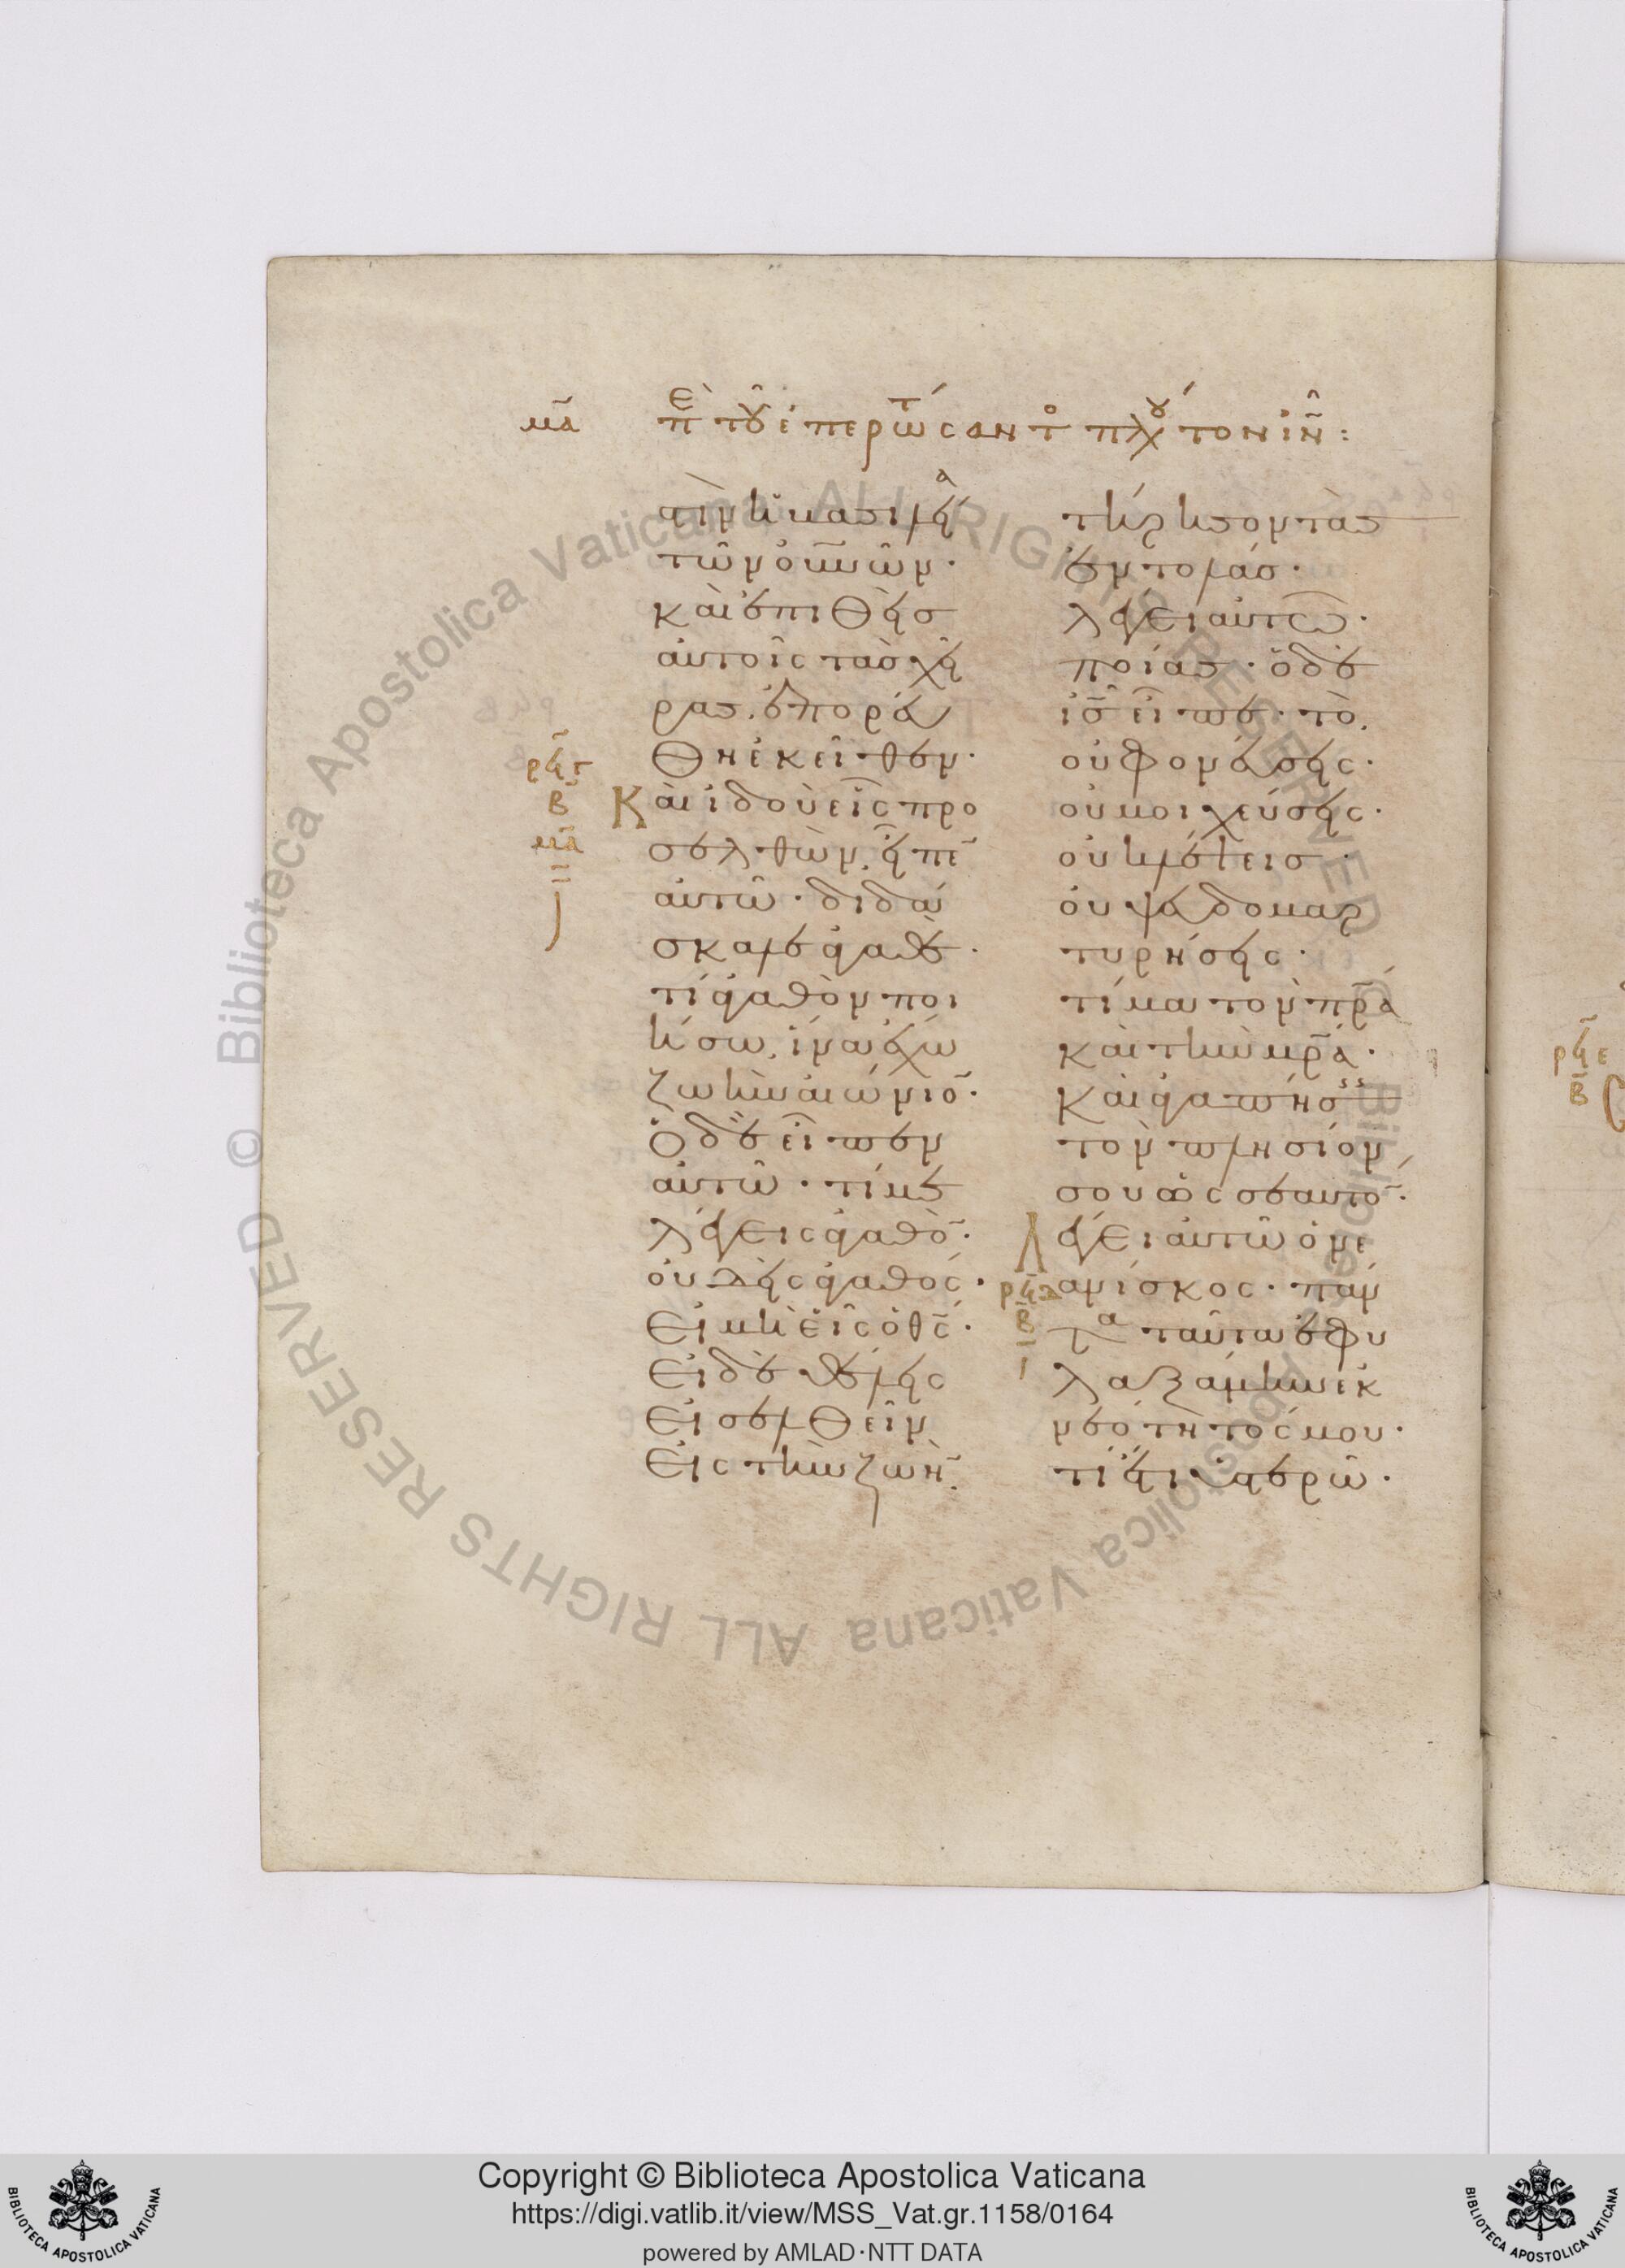 μα̃ πὲ τοῦ ἐπερωτ́σαντο πλού τὸν ἰῆν:
ἐστὶν ἡ βασιλεία
τῶν οὐνῶν·
καὶ ἐπιθεὶς
αὐτοῖς τὰς χεῖ
ρας, ἐπορεύ
θη ἐκεῖθεν·
ρϟγ
β
μα̃
Καὶ ἰδοὺ εἷς προ
σελθὼν, εἶπε̄
αὐτῶ· διδά
σκαλε ἀγαθέ·
τί ἀγαθὸν ποι
ήσω, ἵνα ἔχω
ζωὴν αἰώνιο̄·
Ὁ δὲ εἶπεν
αὐτῶ· τί με
λέγεις ἀγαθό̄·
οὐδεὶς ἀγαθός·
Εἰ μὴ εἷς ὁ θς̄·
Εἰ δὲ θέλεις
Εἰσελθεῖν
Εἰς τὴν ζωὴ̄,
τήρησον τὰς
ἐντολάς·
λέγει αὐτῶ·
ποίας· ὁ δὲ
ις̄ εἶπε· τὸ,
οὐ φονεύσεις·
οὐ μοιχεύσεις·
οὐ κλέψεις·
οὐ ψευδομαρ
τυρήσεις·
τίμα τὸν πρ̄α
καὶ τὴν μρ̄α·
Καὶ ἀγαπήσεις
τὸν πλησίον
σου ὡς σεαυτό̄·
Λέγει αὐτῶ ὁ νε
ρϟδ
β
ανίσκος· πάν
τα ταῦτα ἐφυ
λαξάμην ἐκ
νεότητός μου·
τί ἔτι ὑστερῶ·
ρϟε
β
Copyright © Biblioteca Apostolica Vaticana
https://digi.vatlib.it/view/MSS_Vat.gr.1158/0164
powered by AMLAD·NTT DATA
© Biblioteca Apostolica Vaticana ALL RIGHTS RESERVED
BIBLIOTECA APOSTOLICA VATICANA
BIBLIOTECA APOSTOLICA VATICANA